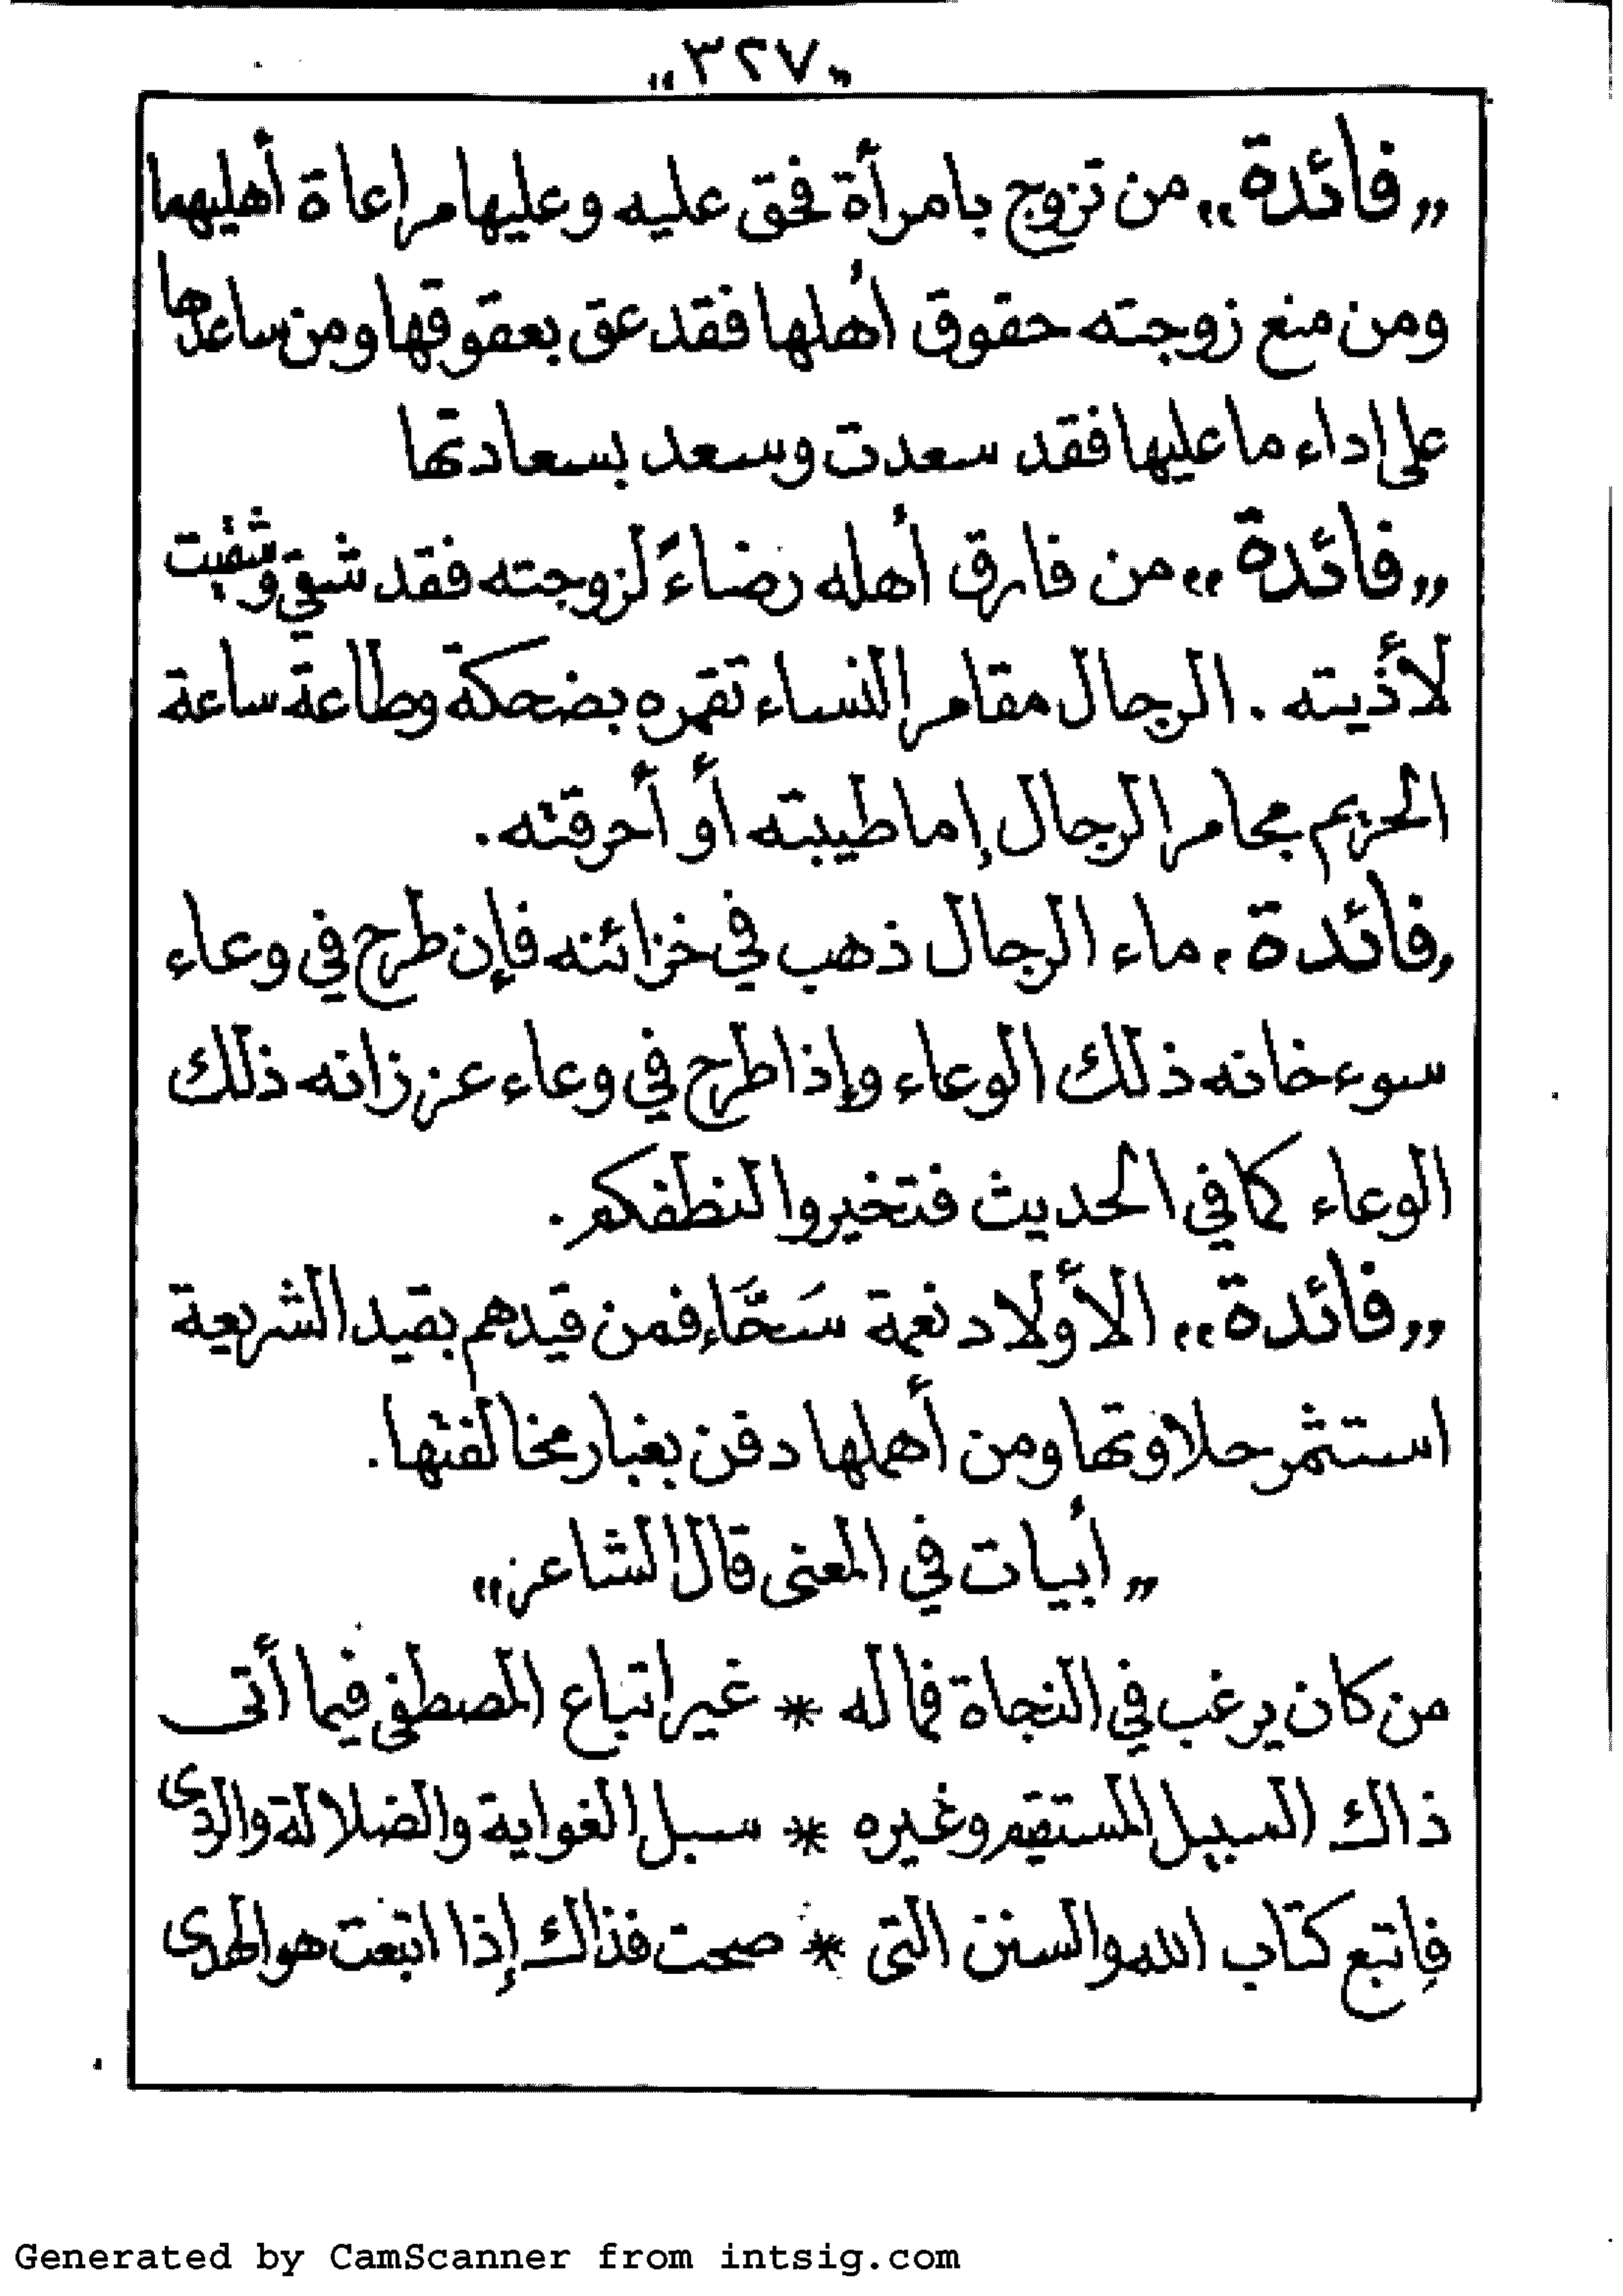 "٣٢٧"
"فائدة" من تزوج بامرأة فحق عليه وعليها مراعاة أهليهما
ومن منع زوجته حقوق أهلها فقد عق بعقوقها ومن ساعدها
على إداء ما عليها فقد سعدت وسعد بسعادتها
"فائدة" من فارق أهله رضاءً لزوجته فقد شقي وشقيت
لأذيته . الرجال مقامر النساء تقمره بضحكة وطاعة ساعة
الحريم مجامر الرجال إما طيبته أو أحرقته .
,فائدة, ماء الرجال ذهب في خزائنه فإن طرح في وعاء
سوء خانه ذلك الوعاء وإذا طرح في وعاء عز زانه ذلك
الوعاء كما في الحديث فتخيروا لنطفكم .
"فائدة" الأولاد نعمة سَحَّاء فمن قيدهم بقيد الشريعة
استثمر حلاوتها ومن أهملها دفن بغبار مخالفتها .
"أبيات في المعنى قال الشاعر"
من كان يرغب في النجاة فما له * غير اتباع المصطفى فيما أتى
ذاك السبيل المستقيم وغيره * سبل الغواية والضلالة والردى
فاتبع كتاب الله والسنن التي * صحت فذاك إذا اتبعت هو الهدى
Generated by CamScanner from intsig.com